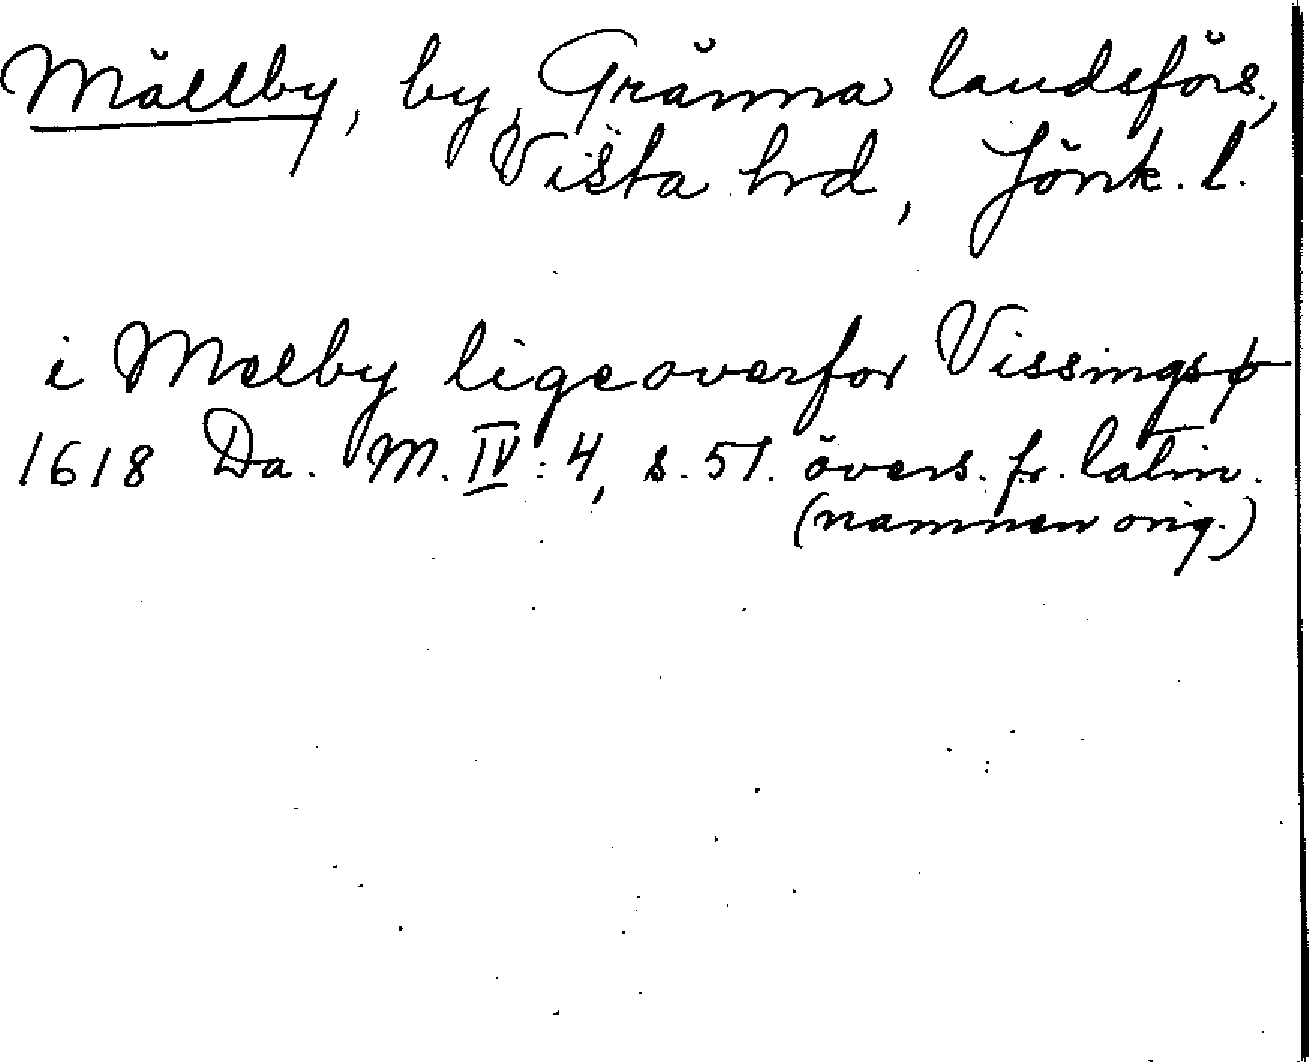 Mällby, by, Gränna landsförs.,
Vista hrd, Jönk. l.
i Melby ligeoverfor Vissingsø
1618 Da. M. IV: 4, s. 51. övers. fr. latin.
(namnen orig.)